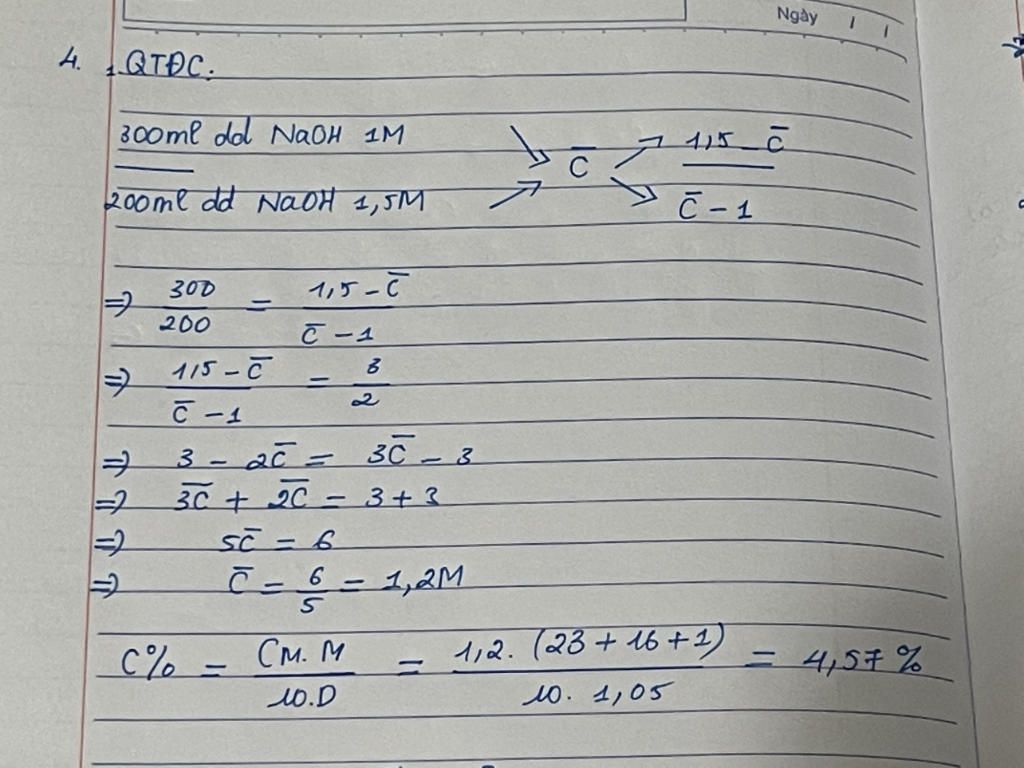 Ngày / /
4. QTĐC:
300ml dd NaOH 1M ↘ C̄ ↗ 1,5 - C̄
200ml dd NaOH 1,5M ↗ ↘ C̄ - 1
=> 300/200 = (1,5 - C̄)/(C̄ - 1)
=> (1,5 - C̄)/(C̄ - 1) = 3/2
=> 3 - 2C̄ = 3C̄ - 3
=> 3C̄ + 2C̄ = 3 + 3
=> 5C̄ = 6
=> C̄ = 6/5 = 1,2M
C% = (CM.M)/(10.D) = (1,2.(23 + 16 + 1))/(10. 1,05) = 4,57%